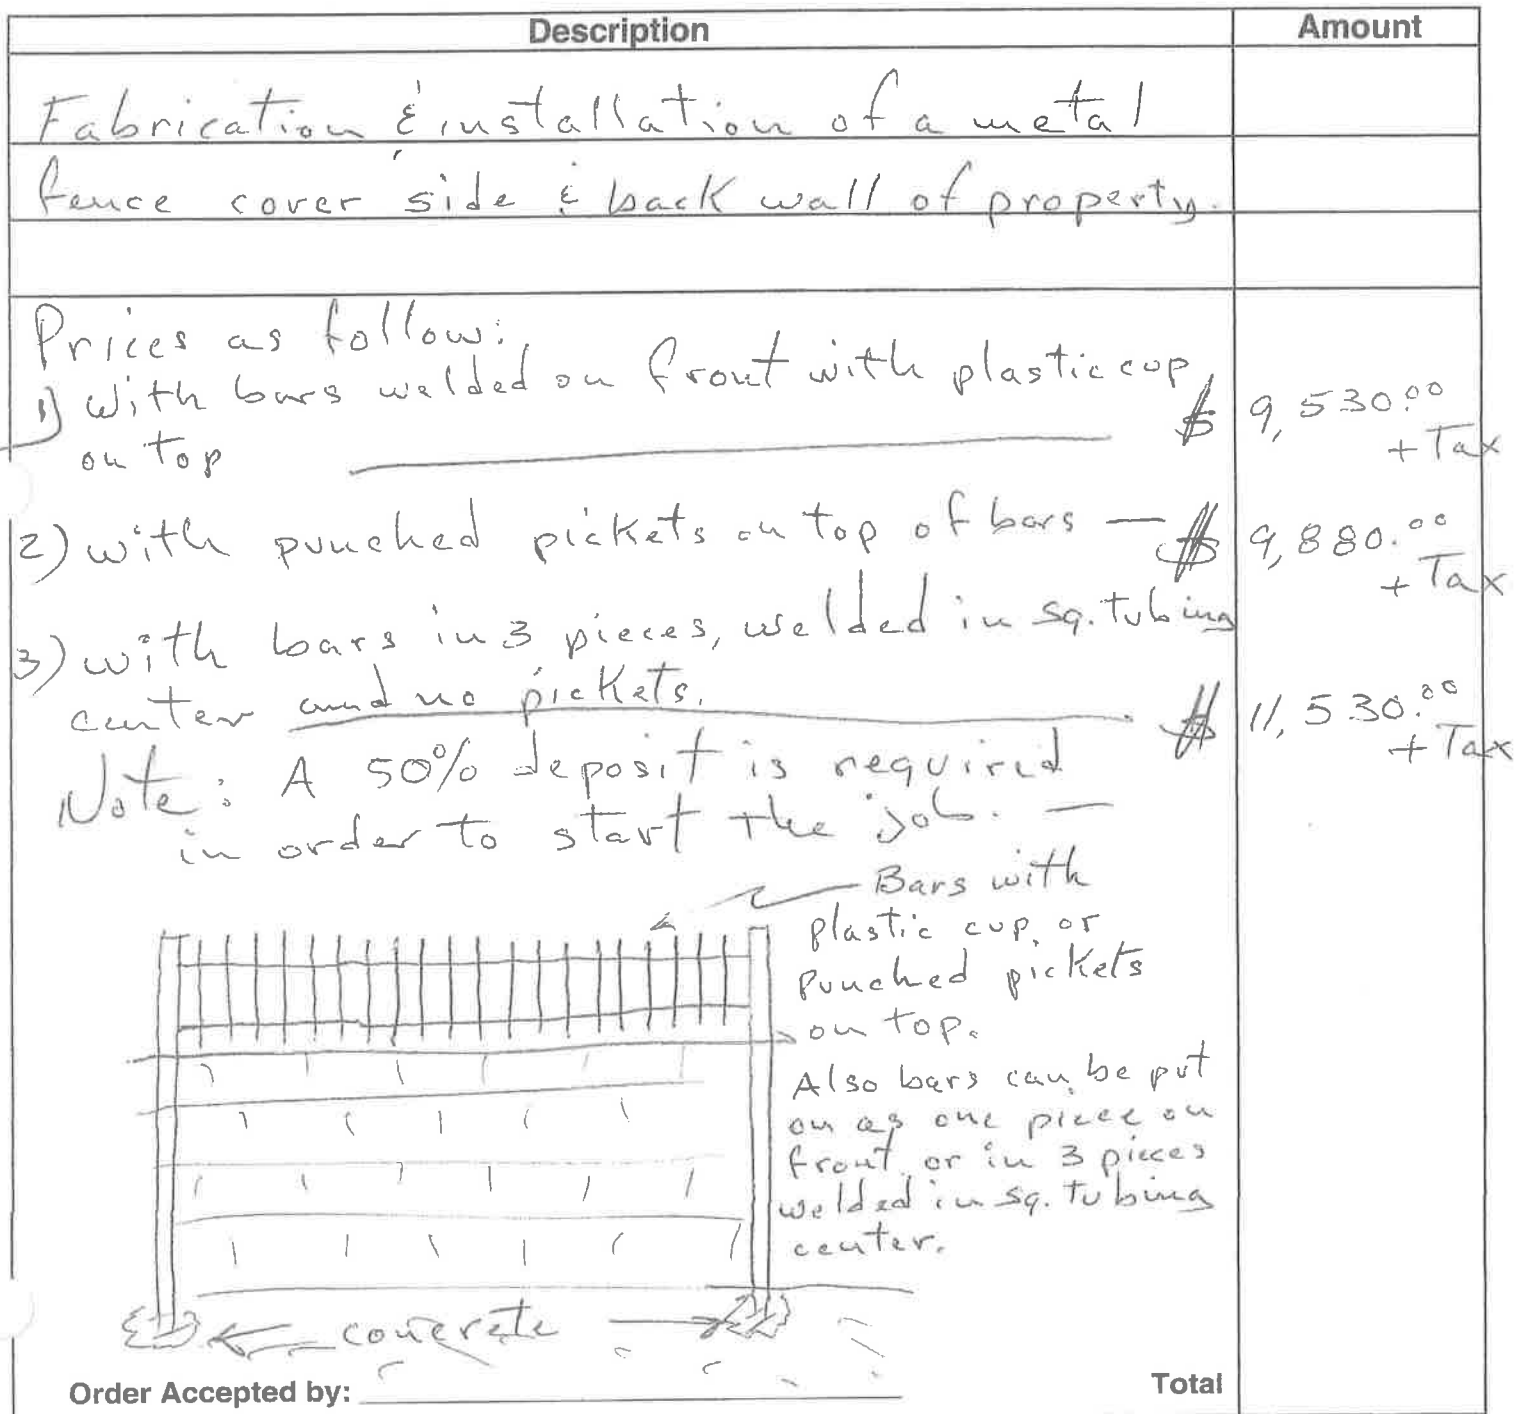 Description Amount
Fabrication & installation of a metal
fence cover side & back wall of property.
Prices as follow:
1) With bars welded on front with plastic cup
on top $ 9,530.00
+ Tax
2) with punched pickets on top of bars — $ 9,880.00
+ Tax
3) with bars in 3 pieces, welded in sq. tubing
center and no pickets. $ 11,530.00
+ Tax
Note: A 50% deposit is required
in order to start the job. —
Bars with
plastic cup, or
punched pickets
on top.
Also bars can be put
on as one piece on
front, or in 3 pieces
welded in sq. tubing
center.
concrete
Order Accepted by: Total